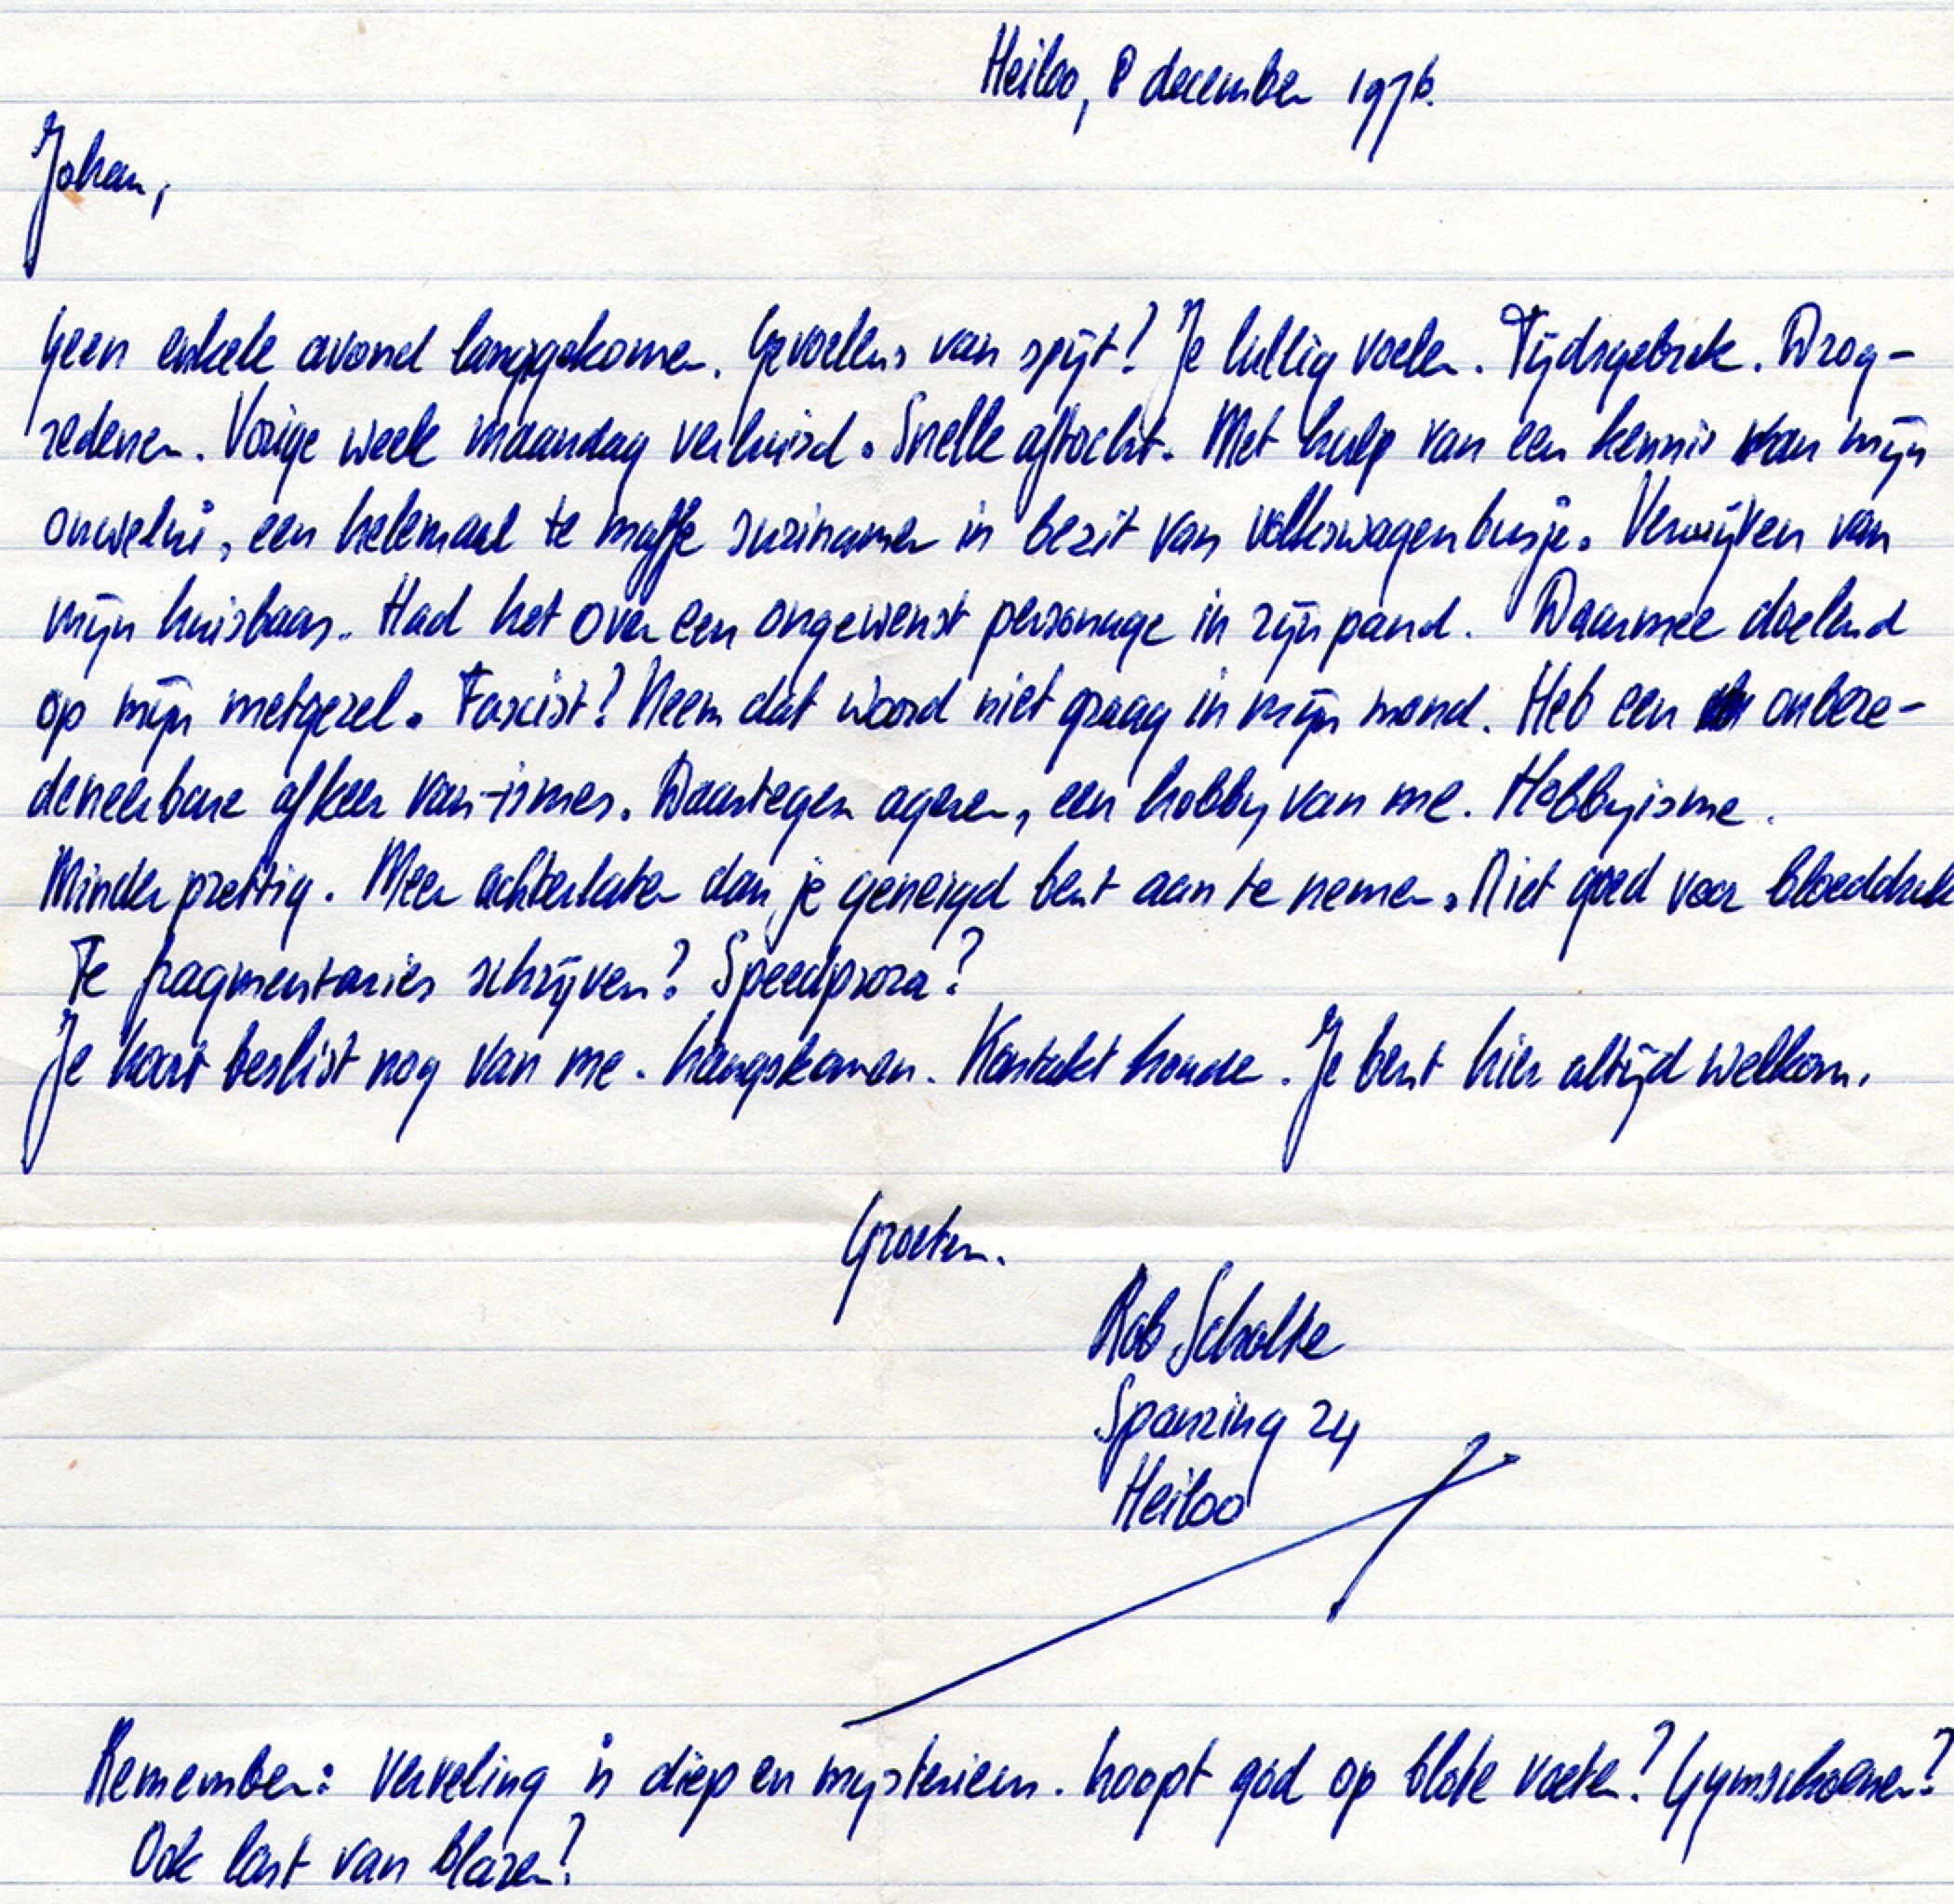 Heiloo, 8 december 1976.
Johan,
Geen enkele avond langsgekomen. Gevoelens van spijt? Je lullig voelen. Tijdsgebrek. Drog-
redenen. Vorige week maandag verhuisd. Snelle aftocht. Met hulp van een kennis van mijn
ouwelui, een helemaal te maffe surinamer in bezit van volkswagenbusje. Verwijten van
mijn huisbaas. Had het over een ongewenst personage in zijn pand. Daarmee doelend
op mijn metgezel. Fascist? Neem dat woord niet graag in mijn mond. Heb een onbere-
deneerbare afkeer van -ismes. Daartegen ageren, een hobby van me. Hobbyisme.
Minder prettig. Meer achterlaten dan je geneigd bent aan te nemen. Niet goed voor bloeddruk
Te fragmentaries schrijven? Speedproza?
Je hoort beslist nog van me. Langskomen. Kontakt houden. Je bent hier altijd welkom.
Groeten.
Rob Scholte
Spanzing 24
Heiloo
Remember: verveling is diep en mysterieus. Loopt god op blote voeten? Gymschoenen?
Ook last van blaren?